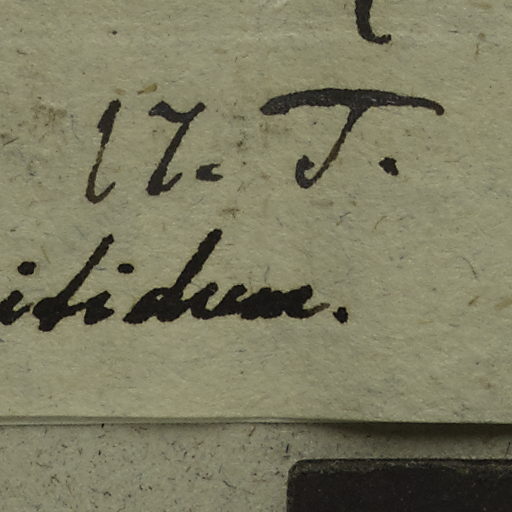 17. T.
itidum.